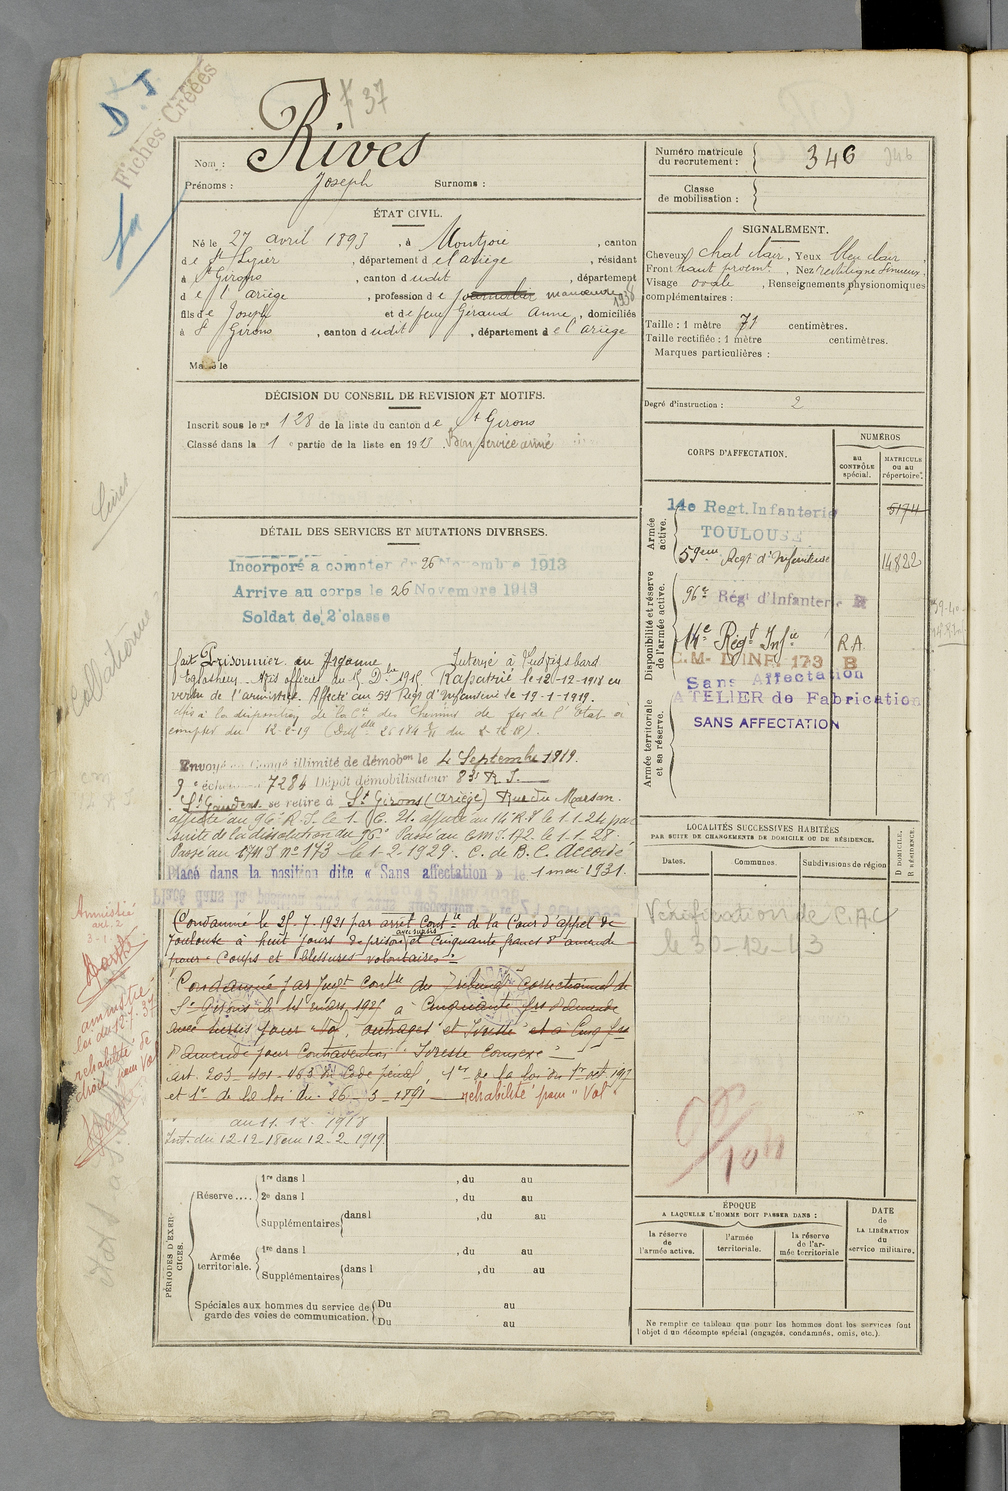 D.I
Fiches Créées
F 37
Nom : Rives
Prénoms : Joseph Surnoms :
Numéro matricule du recrutement : 346 346
Classe de mobilisation :
ÉTAT CIVIL.
Né le 27 avril 1893, à Montjoie, canton
de St Lizier, département de l'ariège, résidant
à St Girons, canton dudit, département
de l'ariège, profession de manœuvre 1938
fils de Joseph et de feue Géraud Anne, domiciliés
à St Girons, canton dudit, département de l'ariège
Marié le
SIGNALEMENT.
Cheveux chat clair, Yeux bleu clair,
Front haut proemt, Nez rectiligne sinueux,
Visage ovale, Renseignements physionomiques
complémentaires :
Taille : 1 mètre 71 centimètres.
Taille rectifiée : 1 mètre centimètres.
Marques particulières :
Degré d'instruction : 2
DÉCISION DU CONSEIL DE REVISION ET MOTIFS.
Inscrit sous le n° 128 de la liste du canton de St Girons
Classé dans la 1e partie de la liste en 1913. Bon service armé
DÉTAIL DES SERVICES ET MUTATIONS DIVERSES.
Incorporé à compter du 26 Novembre 1913
Arrive au corps le 26 Novembre 1913
Soldat de 2e classe
fait Prisonnier en Argonne Interné à Ludwigsbard
Eglosheim. Avis officiel du 5 Dbre 1915. Rapatrié le 12-12-1918 en
vertu de l'armistice. Affecté au 59 Régt d'Infanterie le 19-1-1919.
Mis à la disposition de la Cie des Chemins de fer de l'Etat à
compter du 12-2-19
Envoyé en Congé illimité de démobon le 4 Septembre 1919.
9e échelon 7284 Dépôt démobilisateur 83e R.I.
St Gaudens se retire à St Girons (Ariège) Rue du Marsan.
affecté au 96e R.I. le 1. C. 21. affecté au 14e R.I le 1.1.24 par
suite de la dissolution du 96e Passé au CM I. 172 le 1.1.28.
Passé au CM I n° 173 le 1-2-1929. C. de B.C. Accordé
Placé dans la position dite « Sans affectation » le 1 mai 1931.
Condamné le 25-7-1921 par arrêt Contre de la Cour d'appel de
Toulouse à huit jours de prison avec sursis et Cinquante francs d'amende
pour "Coups et blessures volontaires".
Condamné par Jugt contre du Tribunal Correctionnel de
St Girons le 14 mars 1925 à Cinquante frs d'amende
avec sursis pour "Vol, outrages et Ivresse" et à Cinq frs
d'amende pour Contravention "Ivresse Connexe"
Art. 203-401-463 du Code pénal, 1er de la loi du 1er oct. 1917
et 1er de la loi du 26-3-1891 réhabilité pour "Vol"
au 11.12.1918
Int. du 12-12-18 au 12-2-1919.
Amnistié
art. 2
amnistié
loi du 12-7-37
réhabilité de
droit pour Vol
Collationné
CORPS D'AFFECTATION.
NUMÉROS
au CONTRÔLE spécial.
MATRICULE ou au répertoire.
Armée active.
14e Regt. Infanterie
TOULOUSE
5174
59eme Regt d'Infanterie 14822
Disponibilité et réserve de l'armée active.
96e Rég d'Infanterie R
14e Régt Infie R.A.
C.M. D'INF. 173 B
Sans Affectation
ATELIER de Fabrication
SANS AFFECTATION
Armée territoriale et sa réserve.
LOCALITÉS SUCCESSIVES HABITÉES
PAR SUITE DE CHANGEMENTS DE DOMICILE OU DE RÉSIDENCE.
Dates. Communes. Subdivisions de région
D DOMICILE.
R RÉSIDENCE.
Vérification de C.A.C
le 30-12-43
PÉRIODES D'EXERCICES.
Réserve....
1re dans l , du au
2e dans l , du au
Supplémentaires dans l , du au
Armée territoriale.
1re dans l , du au
Supplémentaires dans l , du au
Spéciales aux hommes du service de garde des voies de communication.
Du au
Du au
ÉPOQUE
A LAQUELLE L'HOMME DOIT PASSER DANS :
la réserve de l'armée active.
l'armée territoriale.
la réserve de l'armée territoriale
DATE de LA LIBÉRATION du service militaire.
Ne remplir ce tableau que pour les hommes dont les services font
l'objet d'un décompte spécial (engagés, condamnés, omis, etc.).